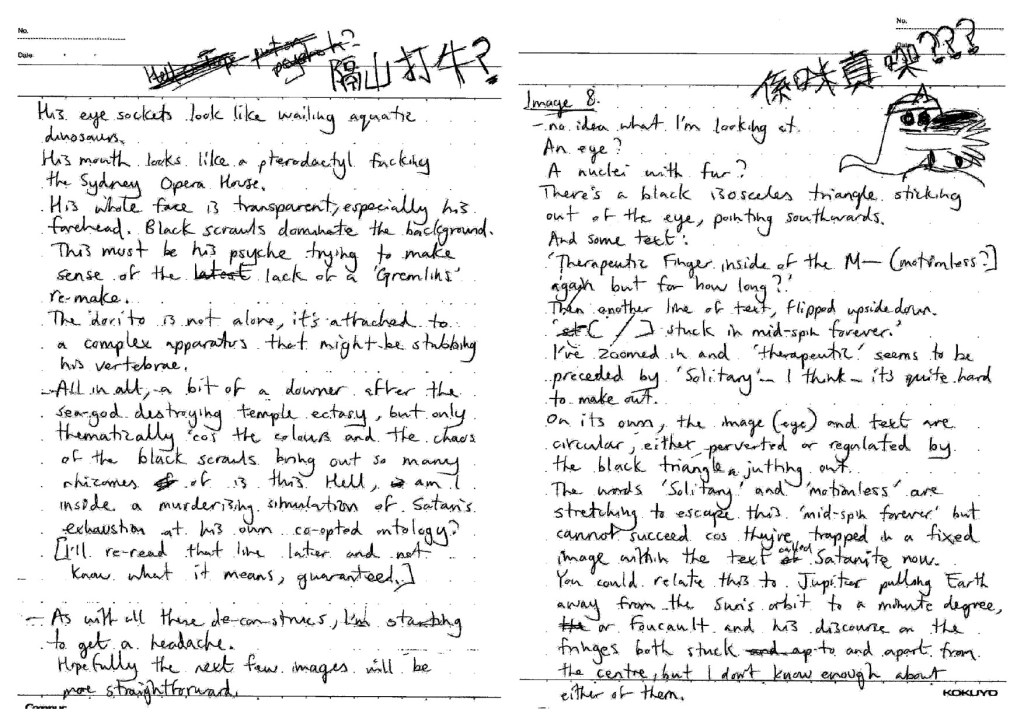 No.
Date
隔山打牛?
His eye sockets look like wailing aquatic
dinosaurs.
His mouth looks like a pterodactyl fucking
the Sydney Opera House.
His whole face is transparent, especially his
forehead. Black scrawls dominate the background.
This must be his psyche trying to make
sense of the latest lack of a 'Gremlins'
re-make.
The 'dorito' is not alone, it's attached to
a complex apparatus that might be stubbing
his vertebrae.
- All in all, a bit of a downer after the
sea-god destroying temple ectasy, but only
thematically 'cos the colours and the chaos
of the black scrawls bring out so many
rhizomes of is this Hell, am I
inside a murderising simulation of Satan's
exhaustion at his own co-opted ontology?
[I'll re-read that line later and not
know what it means, guaranteed.]
- As with all these de-con-strucs, I'm starting
to get a headache.
Hopefully the next few images will be
more straightforward.
Campus
No.
Date
係咪真㗎???
Image 8.
- no idea what I'm looking at.
An eye?
A nuclei with fur?
There's a black isosceles triangle sticking
out of the eye, pointing southwards.
And some text:
'Therapeutic Finger inside of the M— (motionless?]
again but for how long?'
Then another line of text, flipped upside down.
'[ / ] stuck in mid-spin forever.'
I've zoomed in and 'therapeutic' seems to be
preceded by 'Solitary' - I think - its quite hard
to make out.
On its own, the image (eye) and text are
circular, either perverted or regulated by
the black triangle jutting out.
The words 'Solitary' and 'motionless' are
stretching to escape this 'mid-spin forever' but
cannot succeed cos they're trapped in a fixed
image within the text called Satanite now.
You could relate this to Jupiter pulling Earth
away from the Sun's orbit to a minute degree,
or Foucault and his discourse on the
fringes both stuck up to and apart from
the centre, but I don't know enough about
either of them.
KOKUYO